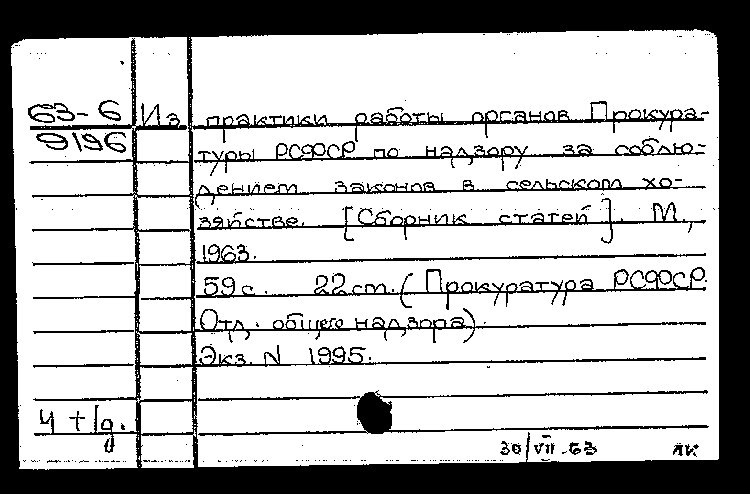 63-6 Из практики работы органов Прокура-
9196 туры РСФСР по надзору за соблю-
дением законов в сельском хо-
зяйстве. [Сборник статей]. М.,
1963.
59с. 22см. (Прокуратура РСФСР.
Отд. общего надзора).
Экз. N 1995.
4+1д.
30/VII-63 лк